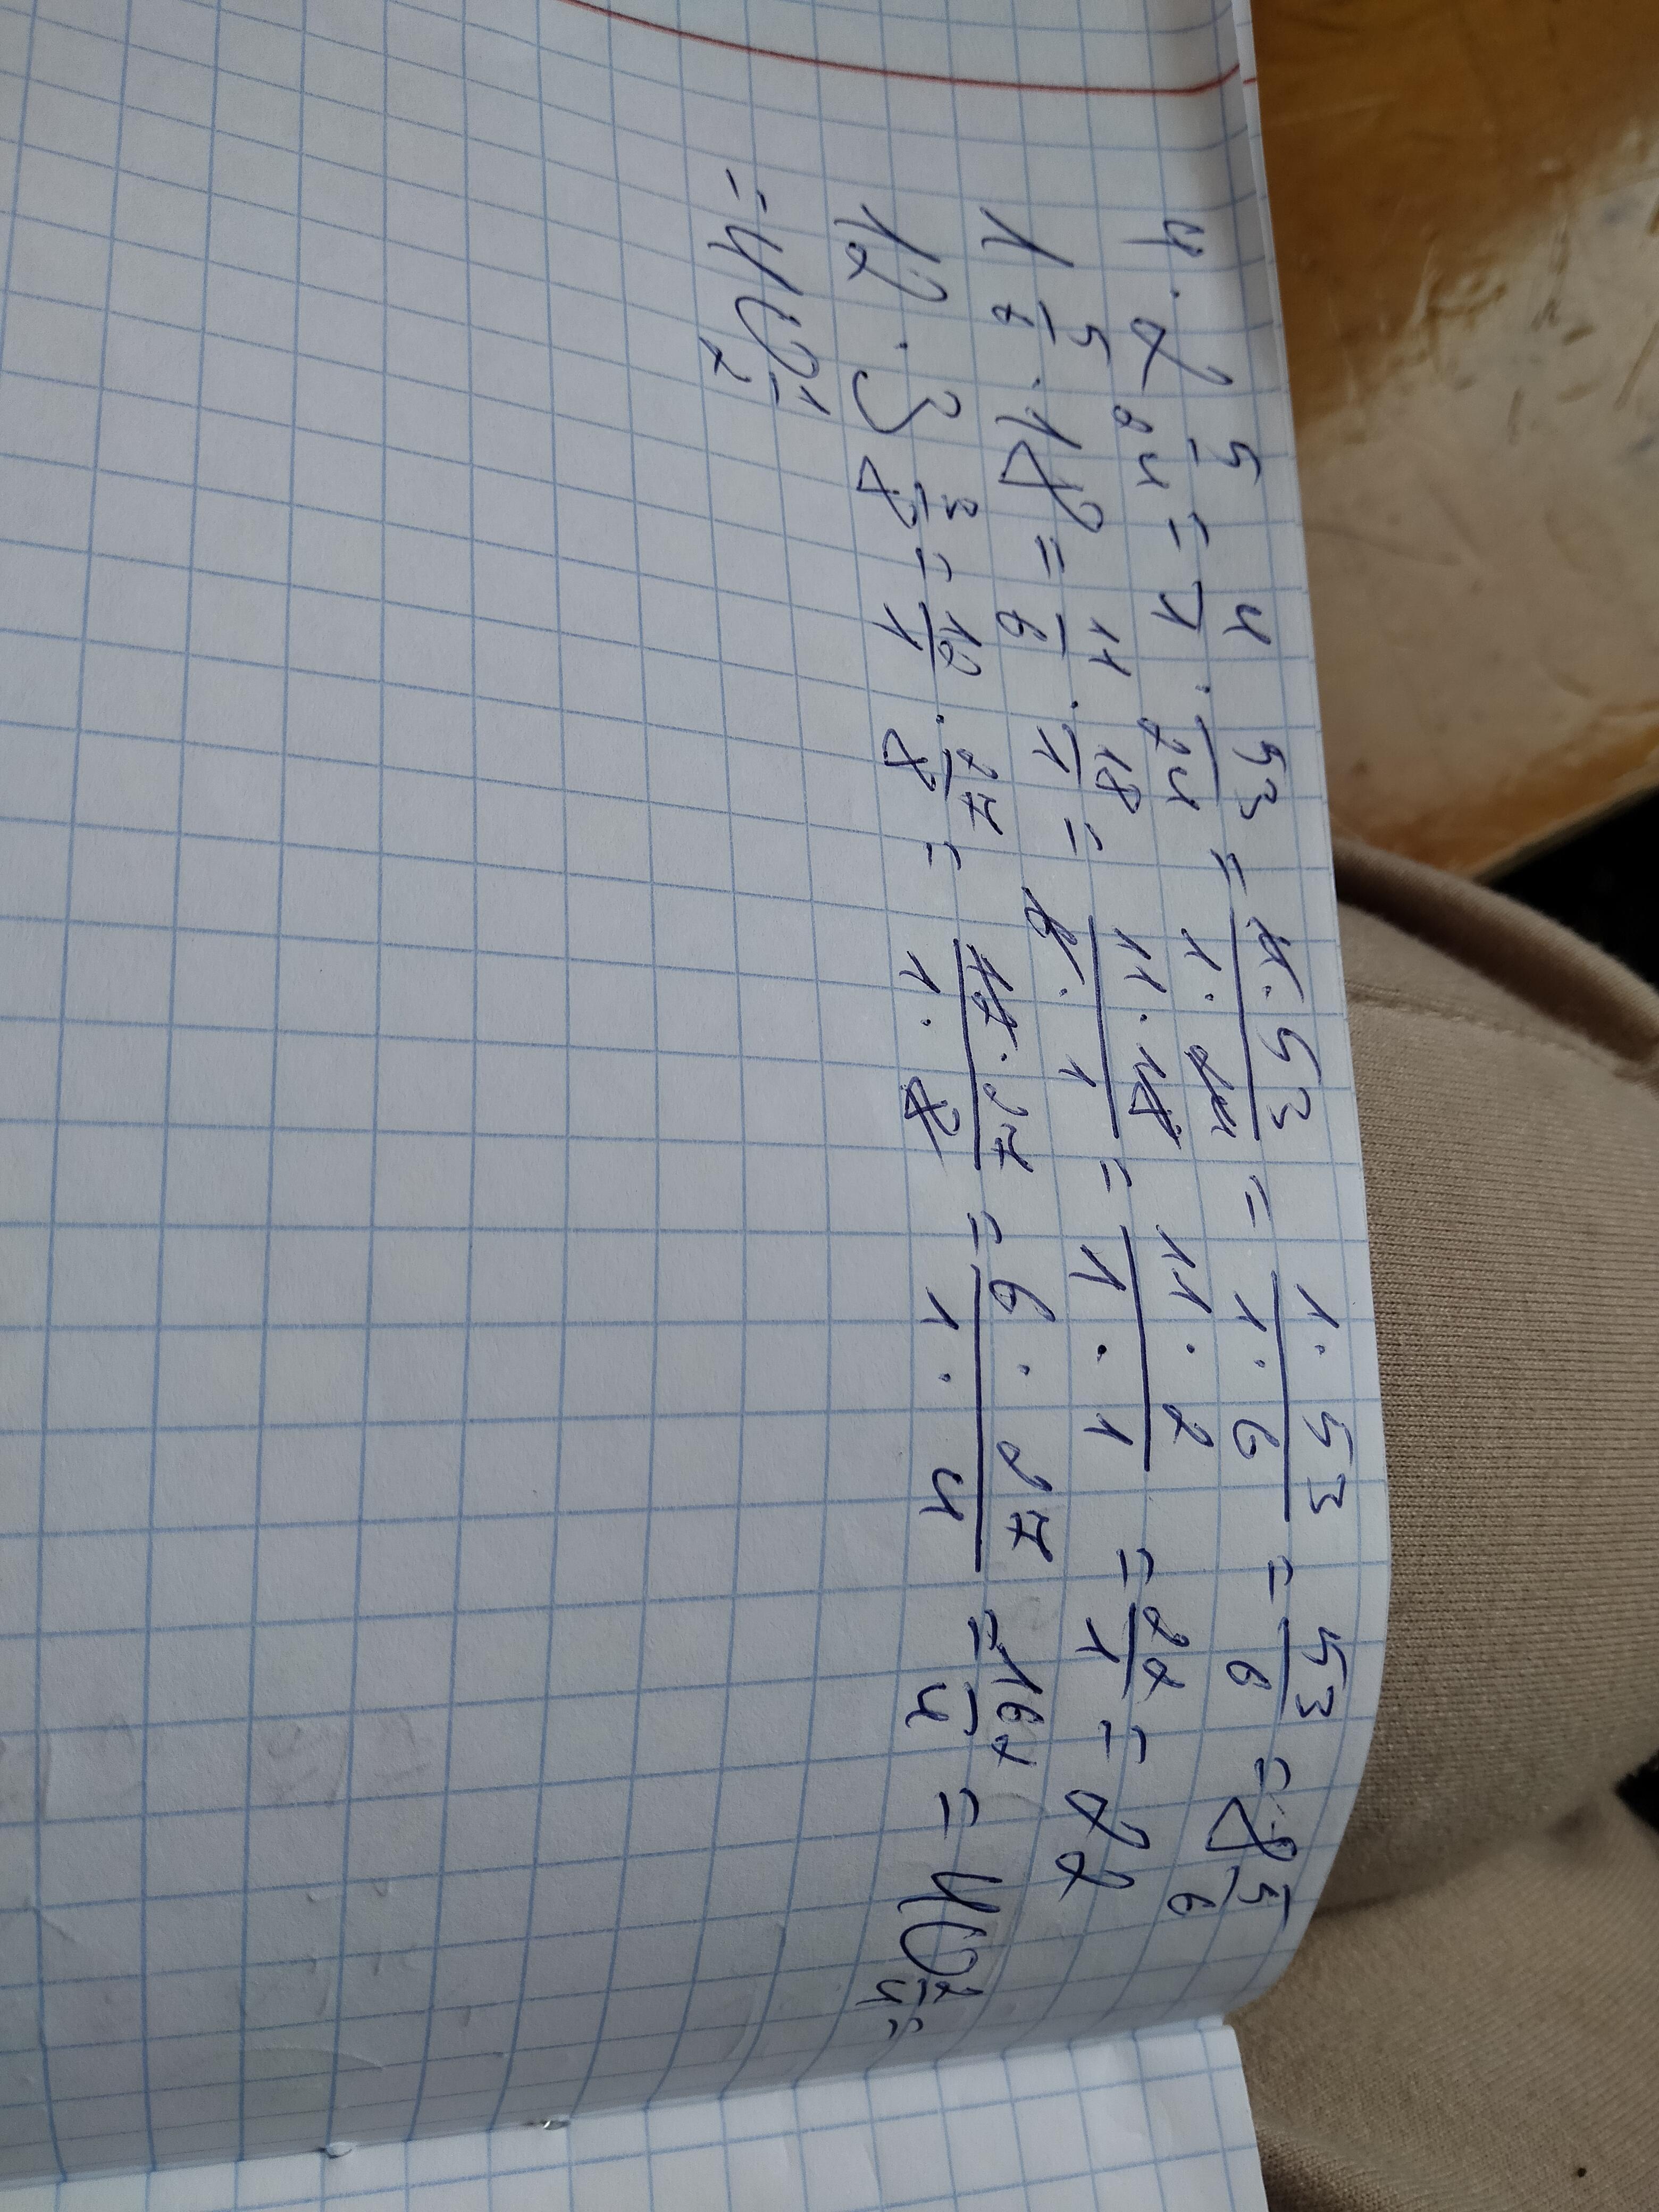 4 · 2 5/24 = 4/1 · 53/24 = 4 · 53/1 · 24 = 1 · 53/1 · 6 = 53/6 = 8 5/6
1 5/6 · 18 = 11/6 · 18/1 = 11 · 18/6 · 1 = 11 · 2/1 · 1 = 22/1 = 22
12 · 3 3/8 = 12/1 · 27/8 = 12 · 27/1 · 8 = 6 · 27/1 · 4 = 162/4 = 40 2/4 =
= 40 1/2